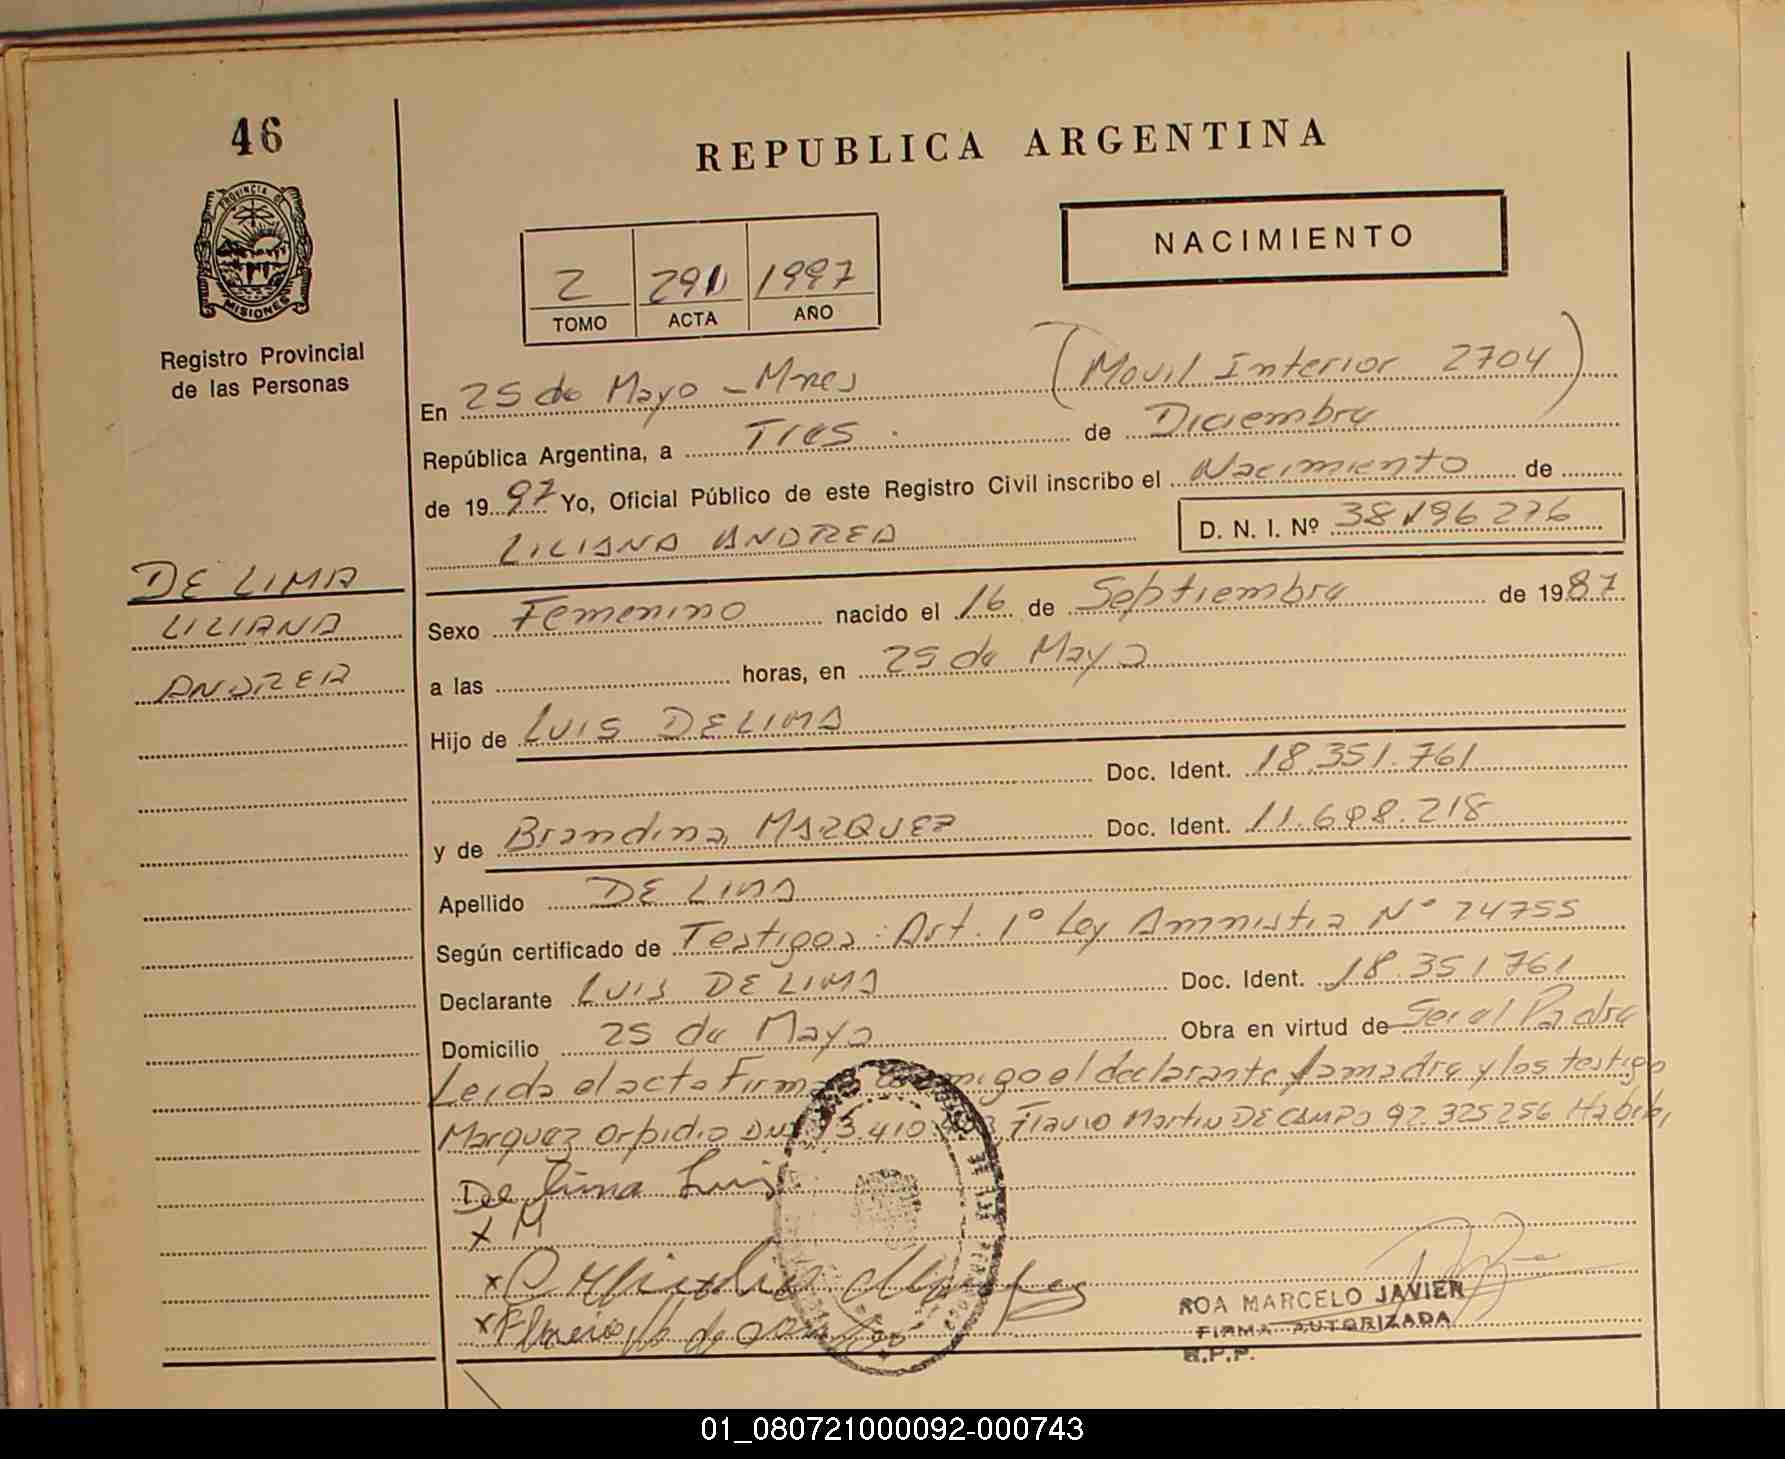 46
REPUBLICA ARGENTINA
PROVINCIA DE
MISIONES
NACIMIENTO
2 291 1997
TOMO ACTA AÑO
Registro Provincial
de las Personas
En 25 de Mayo - Mnes (Movil Interior 2704)
República Argentina, a Tres de Diciembre
de 1997 Yo, Oficial Público de este Registro Civil inscribo el Nacimiento de
LILIANA ANDREA D. N. I. Nº 38196276
DE LIMA
LILIANA
ANDREA
Sexo Femenino nacido el 16 de Septiembre de 1987
a las horas, en 25 de Mayo
Hijo de LUIS DE LIMA
Doc. Ident. 18.351.761
y de Brandina MARQUEZ Doc. Ident. 11.698.218
Apellido DE LIMA
Según certificado de Testigos: Art. 1º Ley Amnistia Nº 24755
Declarante LUIS DE LIMA Doc. Ident. 18.351761
Domicilio 25 de Mayo Obra en virtud de Ser el Padre
Leida el acta Firma conmigo el declarante la madre y los testigo
Marquez Orpidio DNI 13.410 Flavio Martin DE CAMPO 92.325256
De Lima Luis
x M
x
x
ROA MARCELO JAVIER
FIRMA AUTORIZADA
R.P.P.
01_080721000092-000743